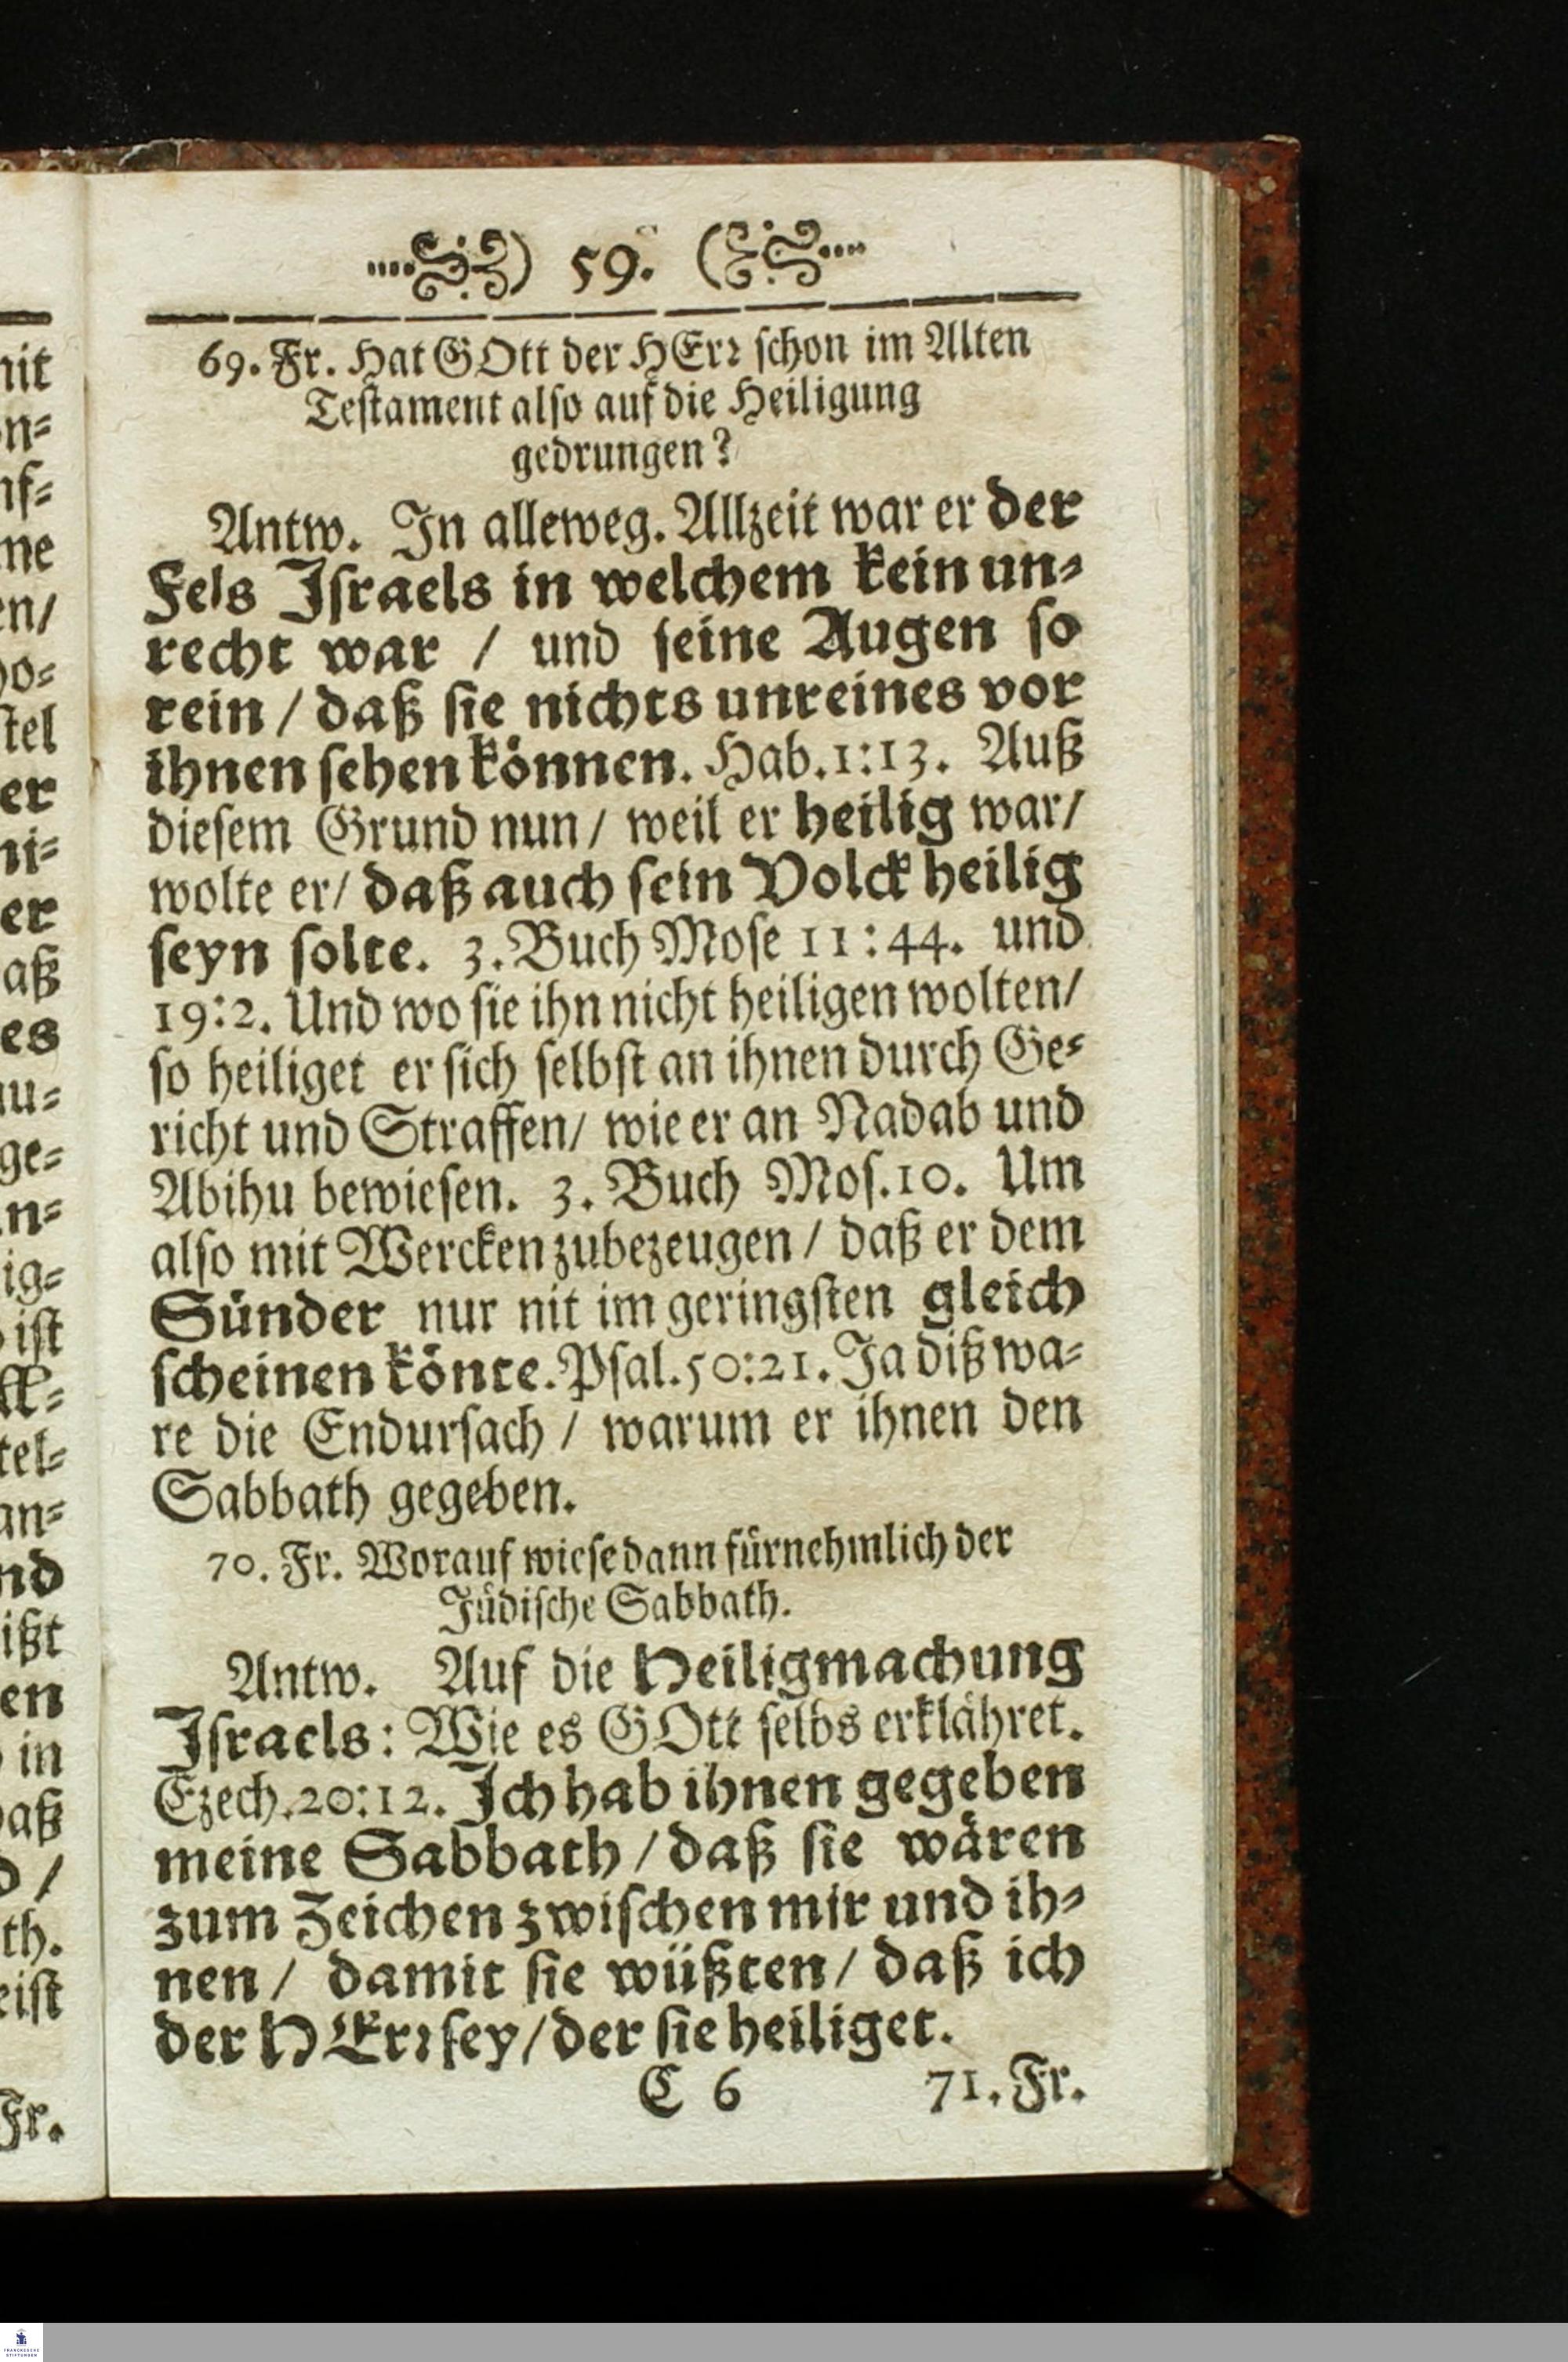 59.
69. Fr. Hat GOtt der HErꝛ ſchon im Alten
Teſtament alſo auf die Heiligung
gedrungen?
Antw. In alleweg. Allzeit war er der
Fels Iſraels in welchem kein un⸗
recht war / und ſeine Augen ſo
rein / daß ſie nichts unreines vor
ihnen ſehen koͤnnen. Hab. 1:13. Auß
dieſem Grund nun / weil er heilig war/
wolte er/ daß auch ſein Volck heilig
ſeyn ſolte. 3. Buch Moſe 11:44. und
19:2. Und wo ſie ihn nicht heiligen wolten/
ſo heiliget er ſich ſelbſt an ihnen durch Ge⸗
richt und Straffen/ wie er an Nadab und
Abihu bewieſen. 3. Buch Moſ. 10. Um
alſo mit Wercken zubezeugen / daß er dem
Sünder nur nit im geringſten gleich
ſcheinen koͤnte. Pſal. 50:21. Ja diß wa⸗
re die Endurſach / warum er ihnen den
Sabbath gegeben.
70. Fr. Worauf wieſe dann fürnehmlich der
Jüdiſche Sabbath.
Antw. Auf die Heiligmachung
Iſraels: Wie es GOtt ſelbs erklaͤhret.
Ezech. 20:12. Ich hab ihnen gegeben
meine Sabbath / daß ſie waͤren
zum Zeichen zwiſchen mir und ih⸗
nen / damit ſie wüßten / daß ich
der HErꝛ ſey / der ſie heiliget.
C 6 71. Fr.
nit
n⸗
nſ⸗
me
en/
ſtel
er
ni⸗
er
aß
es
au⸗
ge⸗
n⸗
ig⸗
iſt
tel⸗
an⸗
nd
ißt
en
in
aß
th.
eiſt
Fr.
FRANCKESCHE
STIFTUNGEN